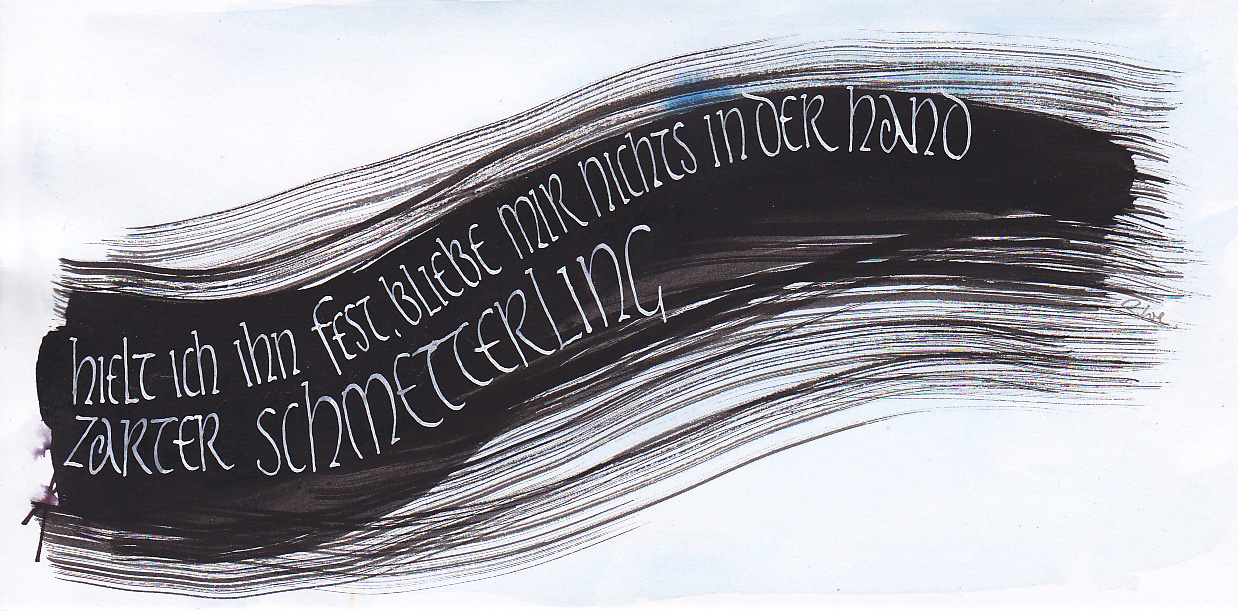 hielt ich ihn fest, bliebe mir nichts in der hand
zarter schmetterling